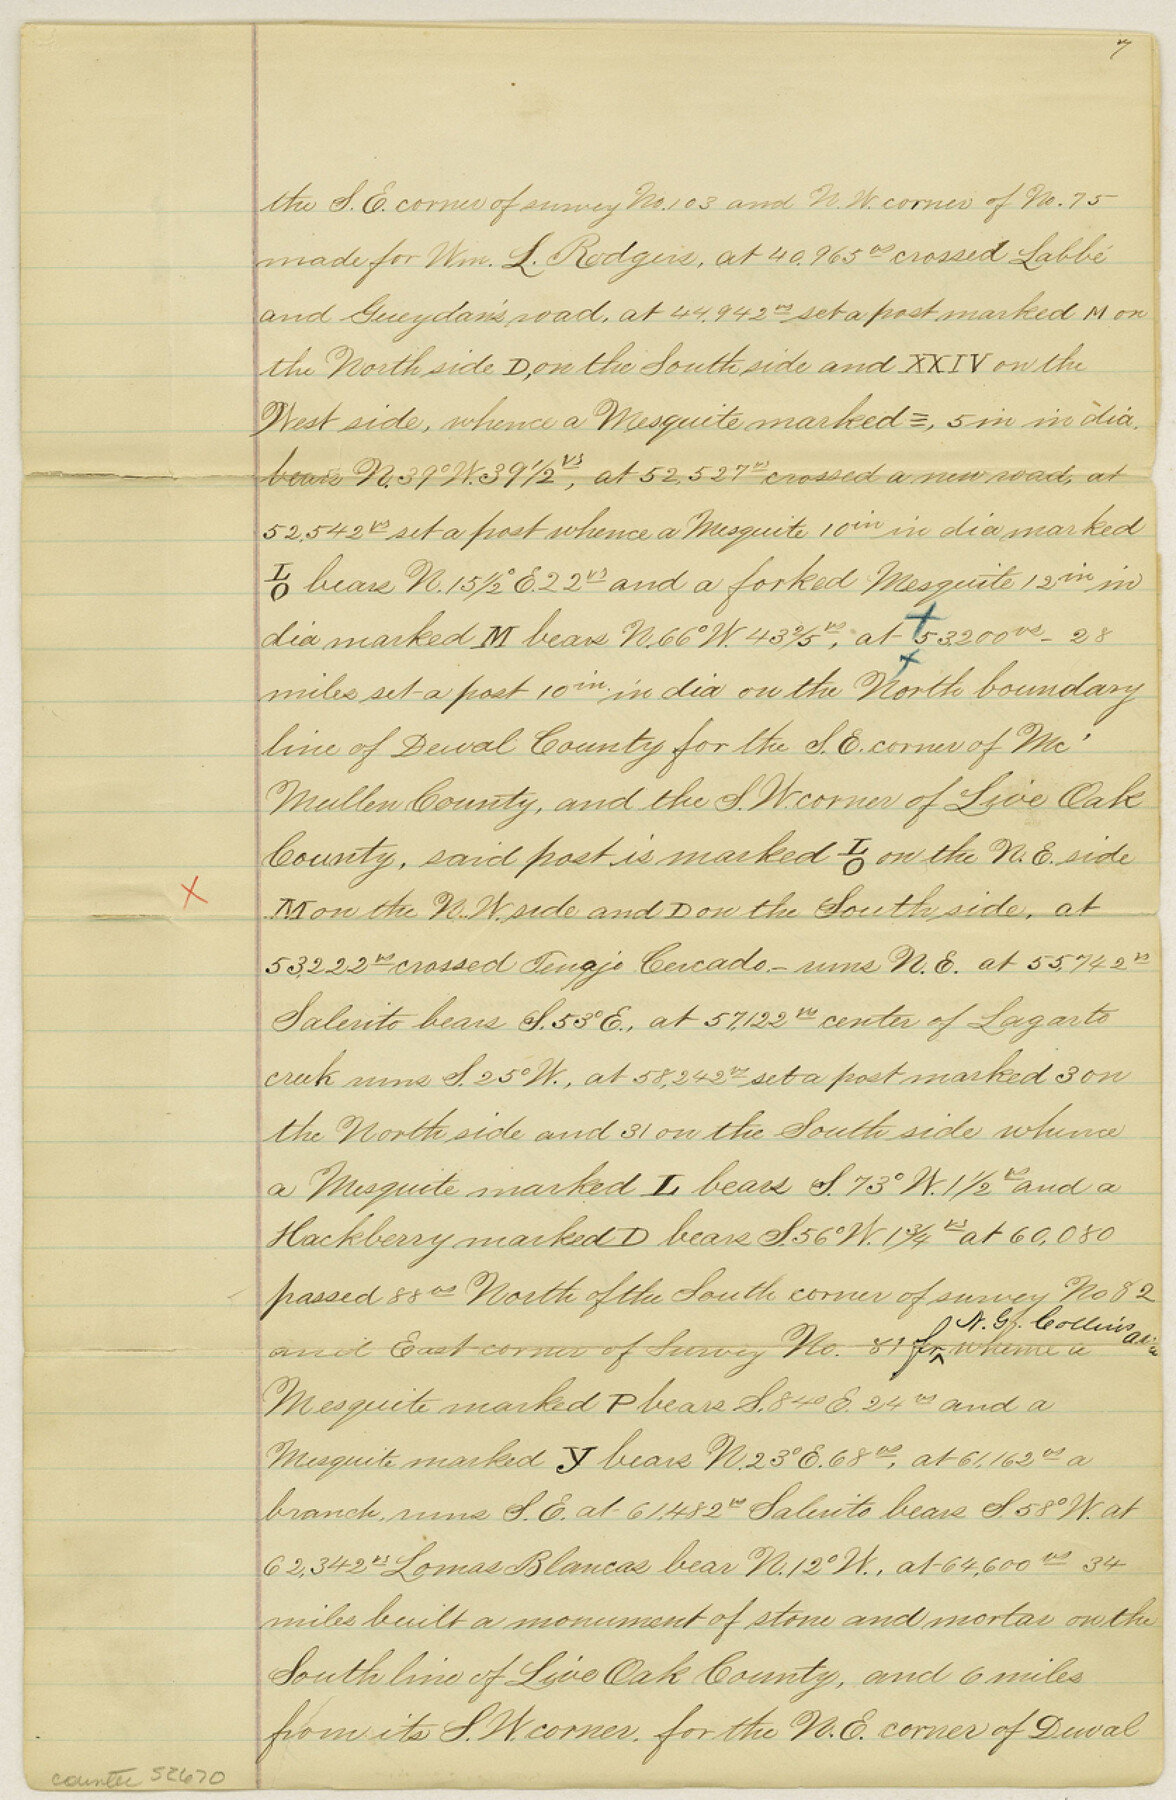 7
the S.E. corner of survey No. 103 and N.W. corner of No. 75
made for Wm. L. Rodgers, at 40,965 vs crossed Labbé
and Gueydan's road, at 44,942 vs set a post marked M on
the North side D, on the South side and XXIV on the
West side, whence a Mesquite marked =, 5 in in dia.
bears N. 39° W. 39 1/2 vs, at 52,527 vs crossed a new road, at
52,542 vs set a post whence a Mesquite 10 in in dia marked
LO bears N. 15 1/2° E. 22 vs and a forked Mesquite 12 in in
dia marked M bears N. 66° W. 43 2/5 vs, at 53200 vs - 28
miles set a post 10 in. in dia on the North boundary
line of Duval County for the S.E. corner of Mc'
Mullen County, and the S.W. corner of Live Oak
County, said post is marked LO on the N.E. side
M on the N.W. side and D on the South side, at
53,222 vs crossed Tenajo Cercado - runs N.E. at 55,742 vs
Salerito bears S. 53° E., at 57,122 vs center of Lagarto
creek runs S. 25° W., at 58,242 vs set a post marked 3 on
the North side and 31 on the South side whence
a Mesquite marked L bears S. 73° W. 1 1/2 vs and a
Hackberry marked D bears S. 56° W. 1 3/4 vs at 60,080
passed 88 vs North of the South corner of survey No 82
N. G. Collins
and East corner of Survey No. 81 for whence a
Mesquite marked P bears S. 84° E. 24 vs and a
Mesquite marked Y bears N. 23° E. 68 vs, at 61,162 vs a
branch, runs S.E. at 61,482 vs Salerito bears S. 58° W. at
62,342 vs Lomas Blancas bear N. 12° W., at 64,600 vs 34
miles built a monument of stone and mortar on the
South line of Live Oak County, and 6 miles
from its S.W. corner, for the N.E. corner of Duval
counter 52670